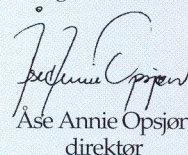 Åse Annie Opsjøn
Åse Annie Opsjøn
direktør